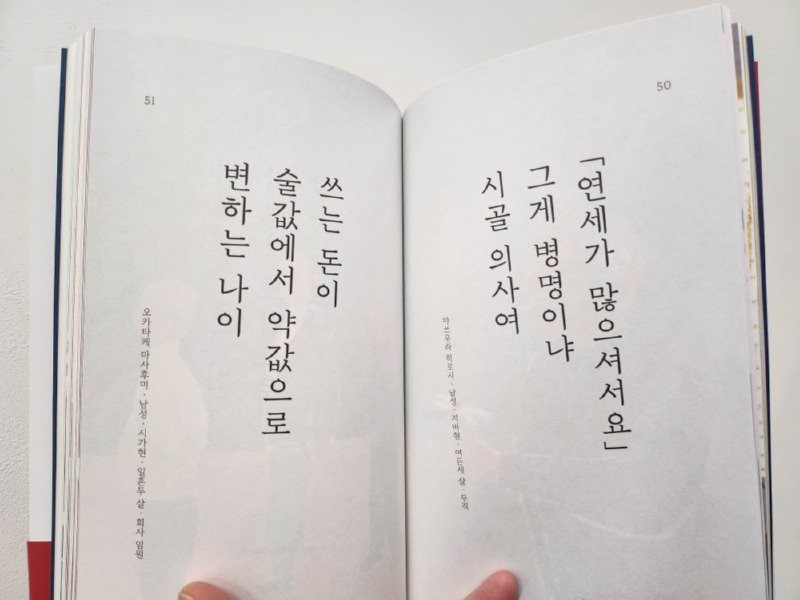 50
「연세가 많으셔서요」
그게 병명이냐
시골 의사여
마쓰우라 히로시·남성·지바현·여든세 살·무직
51
쓰는 돈이
술값에서 약값으로
변하는 나이
오카타케 마사후미·남성·시가현·일흔두 살·회사 임원